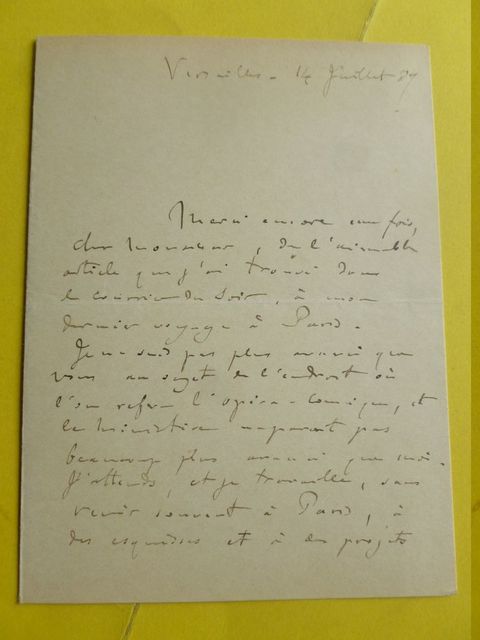 Versailles - 14 Juillet 89
Merci encore une fois,
cher Monsieur, de l'aimable
article que j'ai trouvé dans
le courrier du Soir, à mon
dernier voyage à Paris.
Je ne suis pas plus avancé que
vous au sujet de l'endroit où
l'on refera l'opéra-comique, et
le Ministère ne parait pas
beaucoup plus avancé que moi.
J'attends, et je travaille, sans
venir souvent à Paris, à
des esquisses et à des projets